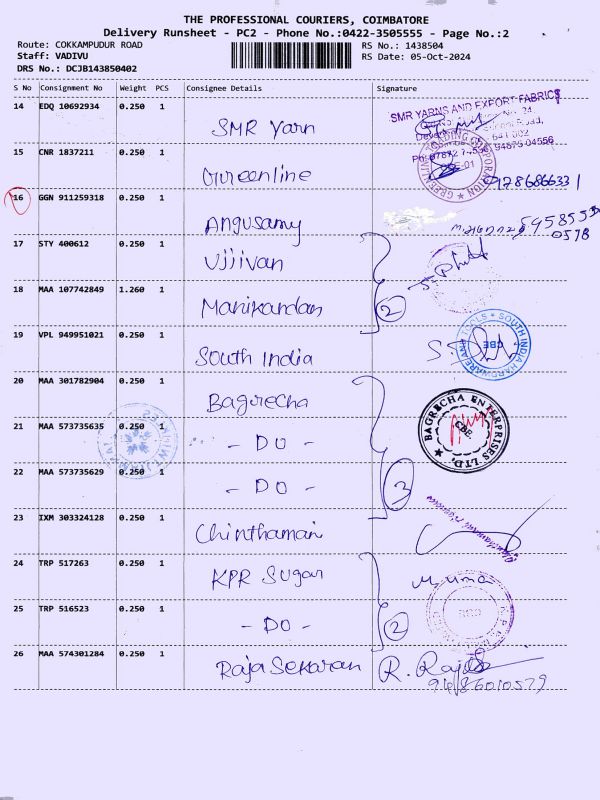 THE PROFESSIONAL COURIERS, COIMBATORE
Delivery Runsheet - PC2 - Phone No.:0422-3505555 - Page No.:2
Route: COKKAMPUDUR ROAD
Staff: VADIVU
DRS No.: DCJB143850402
RS No.: 1438504
RS Date: 05-Oct-2024
S No Consignment No Weight PCS Consignee Details Signature
14 EDQ 10692934 0.250 1
SMR Yarn
SMR YARNS AND EXPORT FABRICS
15 CNR 1837211 0.250 1
Greenline
16 GGN 911259318 0.250 1
Angusamy
17 STY 400612 0.250 1
Ujjivan
18 MAA 107742849 1.260 1
Manikandan
2
19 VPL 949951021 0.250 1
South India
SOUTH INDIA HARDWARE AND TOOLS
CBE
20 MAA 301782904 0.250 1
Bagrecha
BAGRECHA ENTERPRISES LTD.
CBE.
21 MAA 573735635 0.250 1
- DO -
22 MAA 573735629 0.250 1
- DO -
3
23 IXM 303324128 0.250 1
Chinthamani
24 TRP 517263 0.250 1
KPR Sugar
M. Uma
25 TRP 516523 0.250 1
- DO -
2
26 MAA 574301284 0.250 1
Raja Sekaran
R. Raja